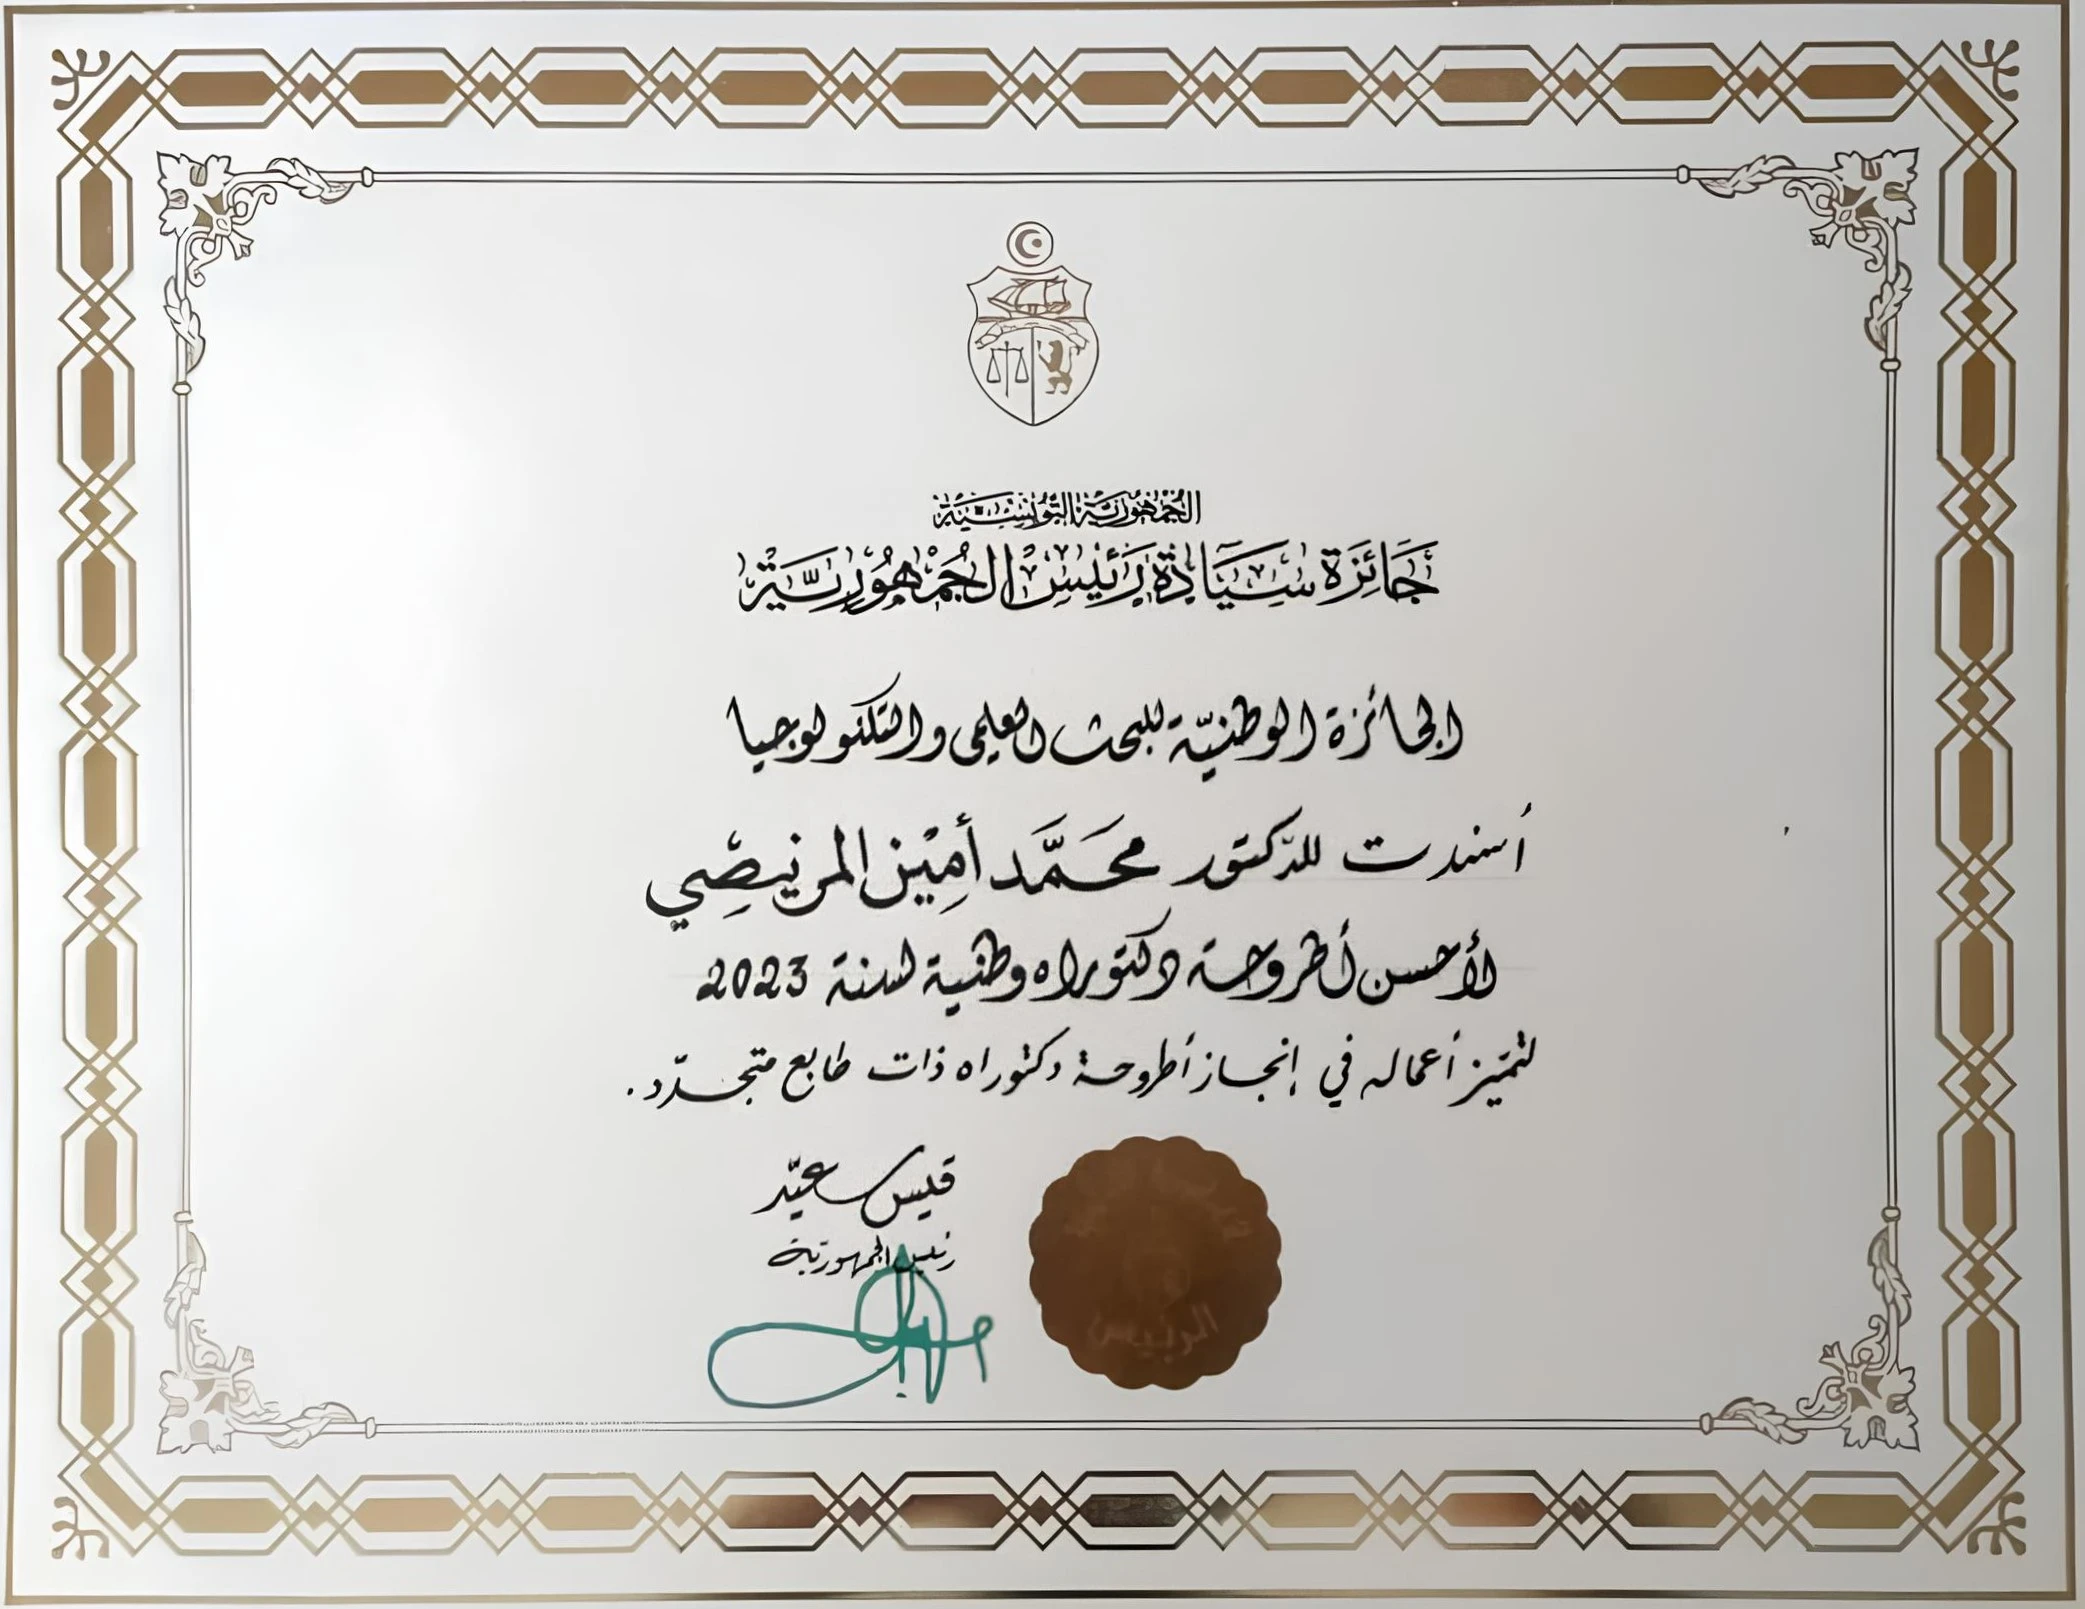 الجمهورية التونسية
جائزة سيادة رئيس الجمهورية
الجائزة الوطنيّة للبحث العلمي والتكنولوجيا
أسندت للدّكتور محمّد أمين المرنيصي
لأحسن أطروحة دكتوراه وطنية لسنة 2023
لتميّز أعماله في إنجاز أطروحة دكتوراه ذات طابع متجدّد.
قيس سعيّد
رئيس الجمهوريّة
الرئيس